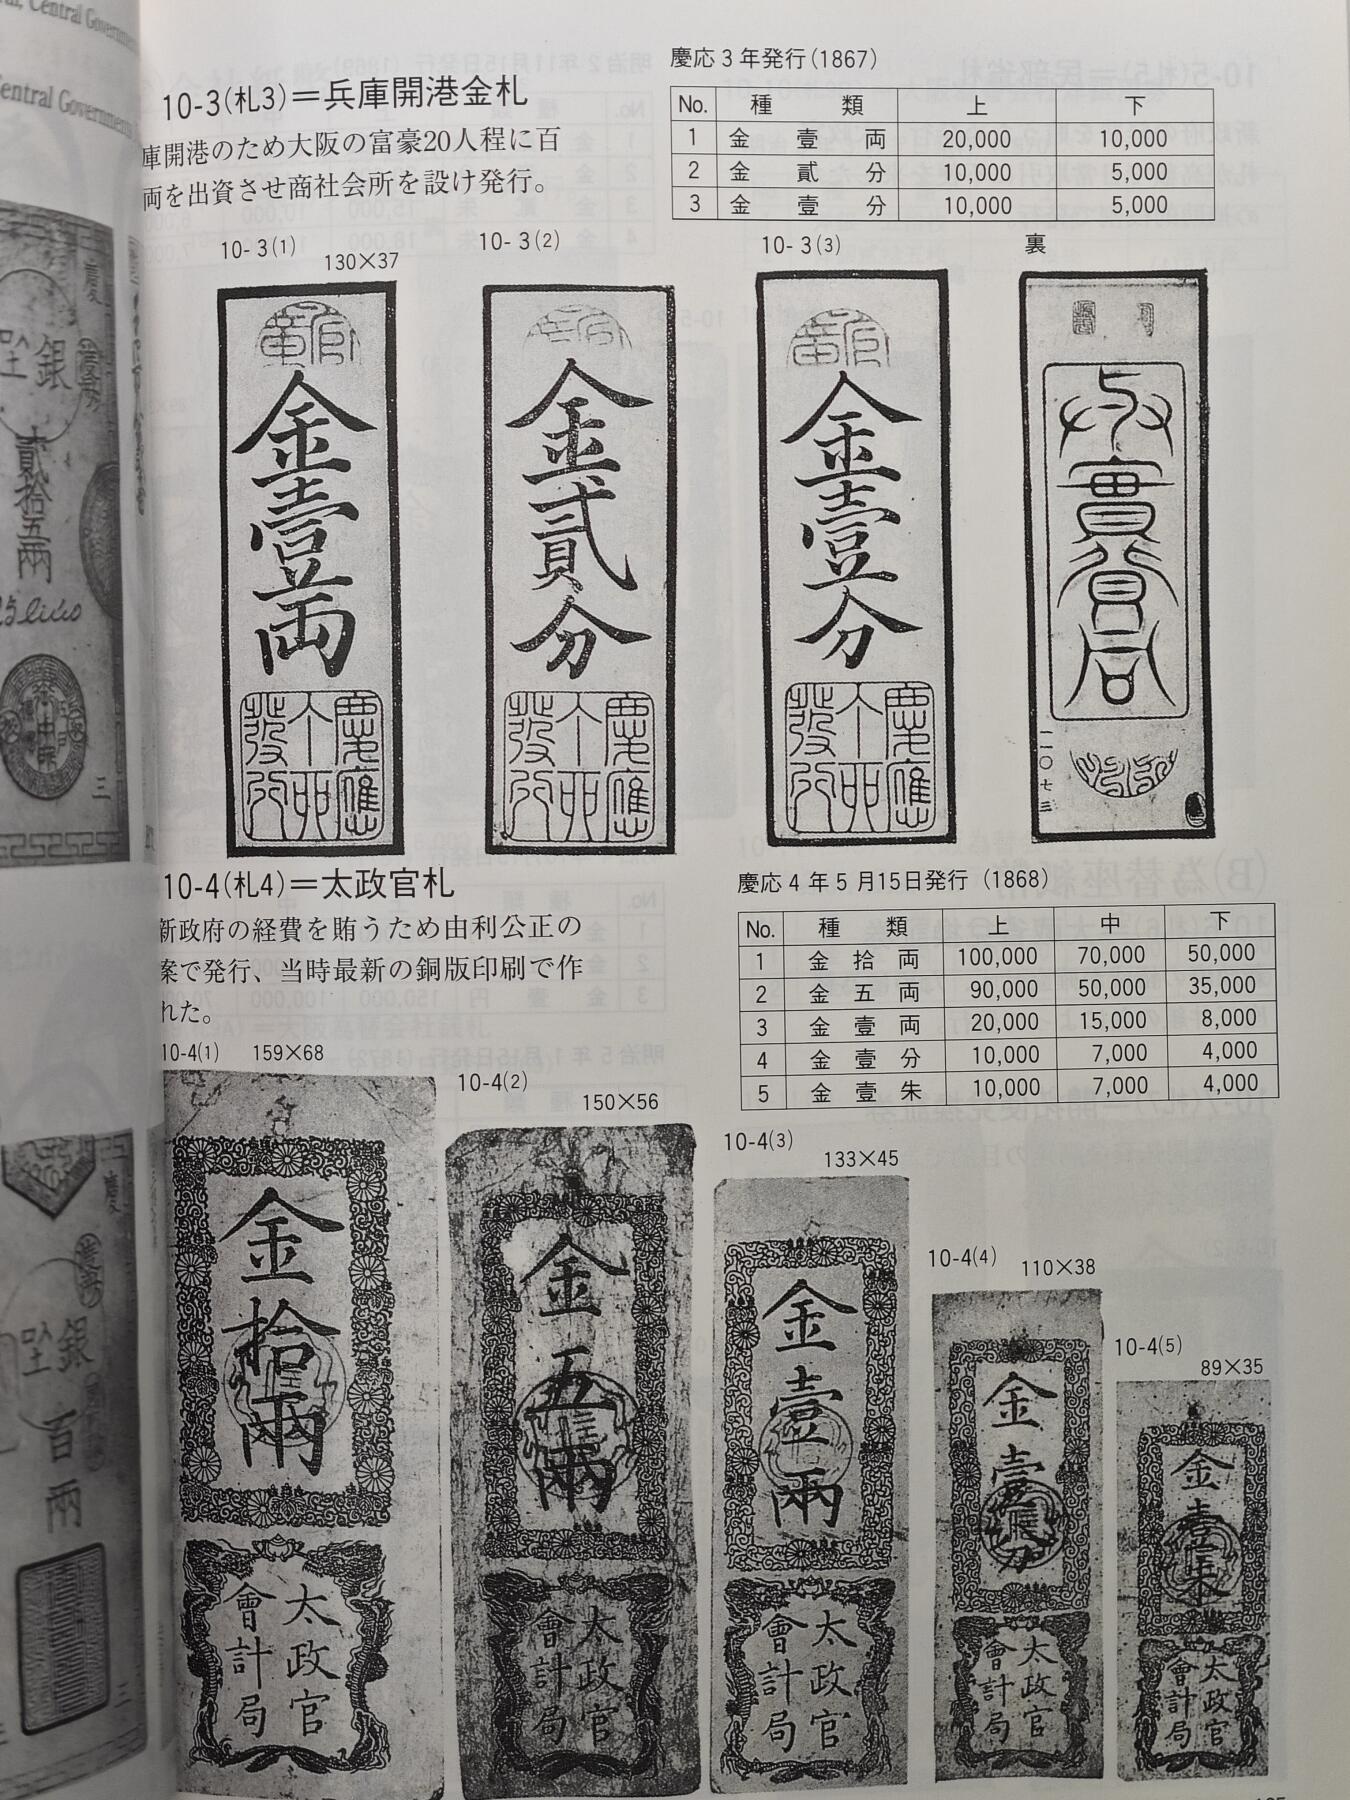 al, Central Government
Central Government
10-3(札3)＝兵庫開港金札
庫開港のため大阪の富豪20人程に百
両を出資させ商社会所を設け発行。
慶応3年発行(1867)
No. 種類 上 下
1 金壹両 20,000 10,000
2 金貳分 10,000 5,000
3 金壹分 10,000 5,000
10-3(1)
130×37
10-3(2)
10-3(3)
裏
金壹両
慶應
発行
金貳分
慶應
発行
金壹分
慶應
発行
一一〇七三
10-4(札4)＝太政官札
新政府の経費を賄うため由利公正の
案で発行、当時最新の銅版印刷で作
れた。
慶応4年5月15日発行(1868)
No. 種類 上 中 下
1 金拾両 100,000 70,000 50,000
2 金五両 90,000 50,000 35,000
3 金壹両 20,000 15,000 8,000
4 金壹分 10,000 7,000 4,000
5 金壹朱 10,000 7,000 4,000
10-4(1) 159×68
10-4(2)
150×56
10-4(3)
133×45
10-4(4)
110×38
10-4(5)
89×35
金拾兩
太政官
會計局
金五兩
太政官
會計局
金壹兩
太政官
會計局
金壹分
太政官
會計局
金壹朱
太政官
會計局
慶
銀
貳拾五兩
三
慶
銀
百兩